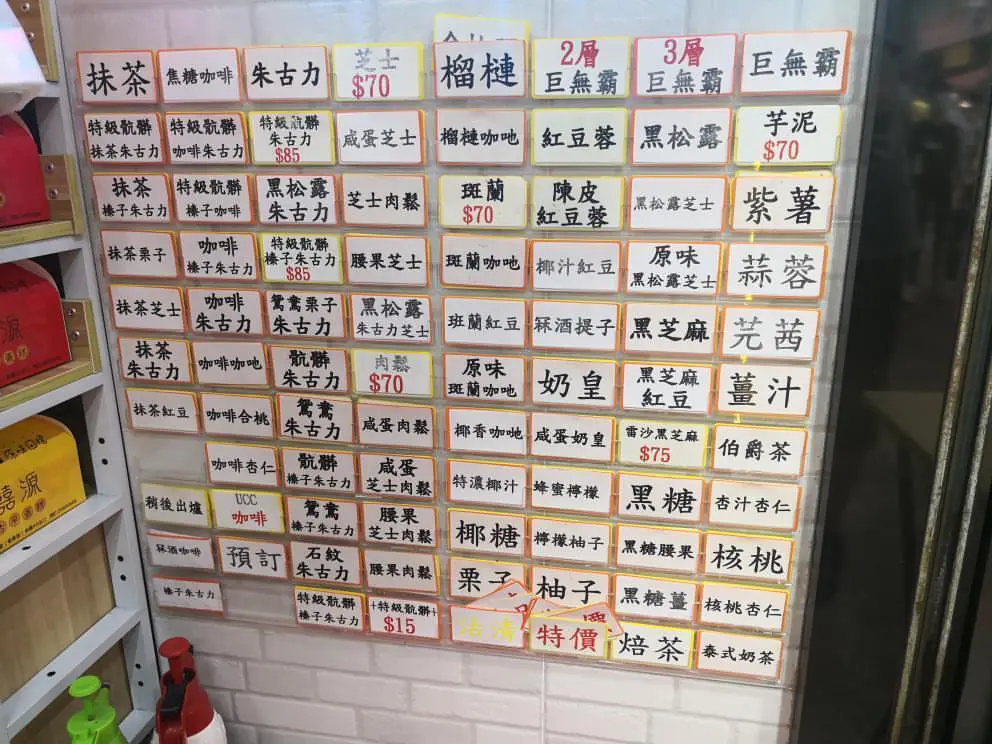 抹茶
焦糖咖啡
朱古力
芝士
$70
榴槤
2層
巨無霸
3層
巨無霸
巨無霸
特級骯髒
抹茶朱古力
特級骯髒
咖啡朱古力
特級骯髒
朱古力
$85
咸蛋芝士
榴槤咖吔
紅豆蓉
黑松露
芋泥
$70
抹茶
榛子朱古力
特級骯髒
榛子咖啡
黑松露
朱古力
芝士肉鬆
斑蘭
$70
陳皮
紅豆蓉
黑松露芝士
紫薯
抹茶栗子
咖啡
榛子朱古力
特級骯髒
榛子朱古力
$85
腰果芝士
斑蘭咖吔
椰汁紅豆
原味
黑松露芝士
蒜蓉
抹茶芝士
咖啡
朱古力
鴛鴦栗子
朱古力
黑松露
朱古力芝士
班蘭紅豆
冧酒提子
黑芝麻
芫茜
抹茶
朱古力
咖啡咖吔
骯髒
朱古力
肉鬆
$70
原味
斑蘭咖吔
奶皇
黑芝麻
紅豆
薑汁
抹茶紅豆
咖啡合桃
鴛鴦
朱古力
咸蛋肉鬆
椰香咖吔
咸蛋奶皇
雷沙黑芝麻
$75
伯爵茶
咖啡杏仁
骯髒
榛子朱古力
咸蛋
芝士肉鬆
特濃椰汁
蜂蜜檸檬
黑糖
杏汁杏仁
稍後出爐
UCC
咖啡
鴛鴦
榛子朱古力
腰果
芝士肉鬆
椰糖
檸檬柚子
黑糖腰果
核桃
冧酒咖啡
預訂
石紋
朱古力
腰果肉鬆
栗子
柚子
黑糖薑
核桃杏仁
榛子朱古力
特級骯髒
榛子朱古力
+特級骯髒+
$15
沽清
特價
焙茶
泰式奶茶
源
禧源